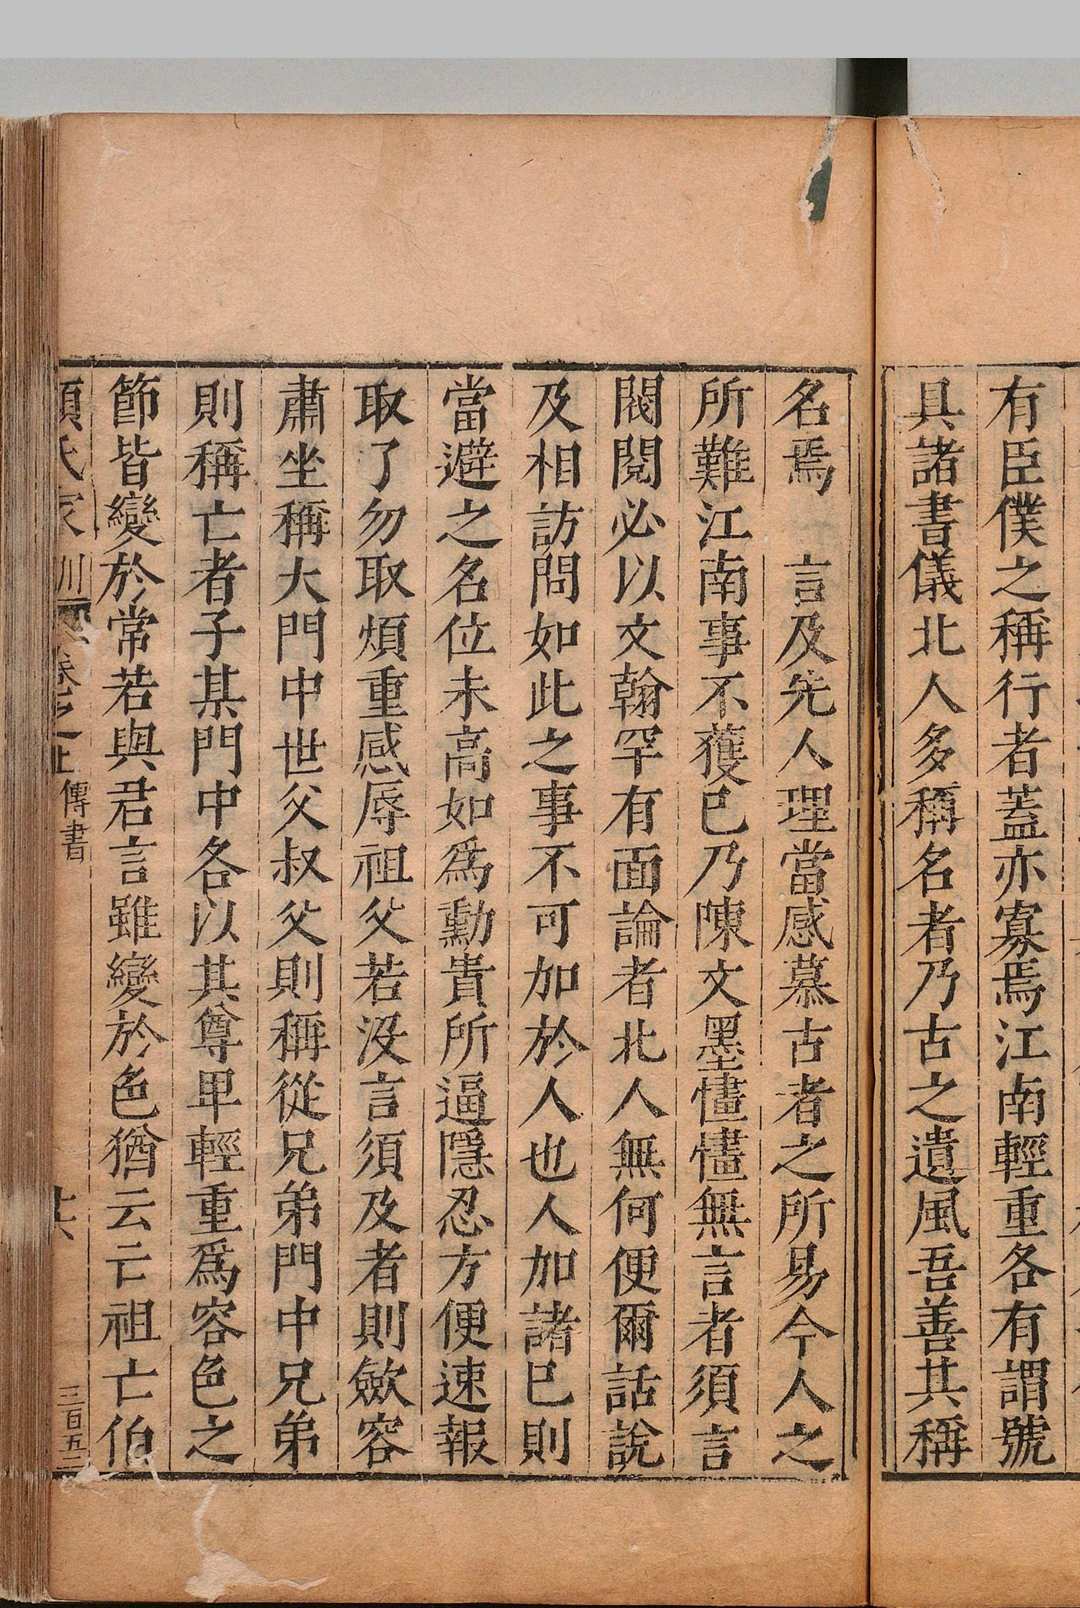 有臣僕之稱行者蓋亦寡焉江南輕重各有謂號
具諸書儀北人多稱名者乃古之遺風吾善其稱
名焉　言及先人理當感慕古者之所易今人之
所難江南事不獲已乃陳文墨㦎㦎無言者須言
閥閱必以文翰罕有面論者北人無何便爾話說
及相訪問如此之事不可加於人也人加諸已則
當避之名位未高如爲勳貴所逼隱忍方便速報
取了勿取煩重感辱祖父若沒言須及者則斂容
肅坐稱大門中世父叔父則稱從兄弟門中兄弟
則稱亡者子某門中各以其尊卑輕重爲容色之
節皆變於常若與君言雖變於色猶云亡祖亡伯
顏氏家訓 卷之上 傳書
三百五二